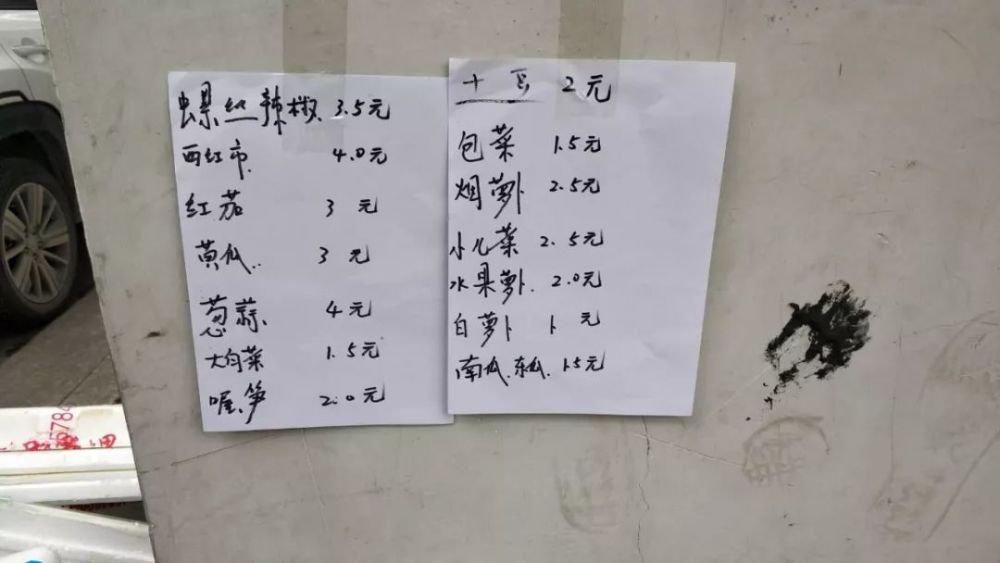 螺丝辣椒 3.5元
西红市 4.0元
红茄 3 元
黄瓜.. 3 元
葱蒜 4元
大白菜 1.5元
喔笋 2.0元
土豆 2元
包菜 1.5元
烟萝卜 2.5元
小儿菜 2.5元
水果萝卜. 2.0元
白萝卜 1 元
南瓜.东瓜. 1.5元
578